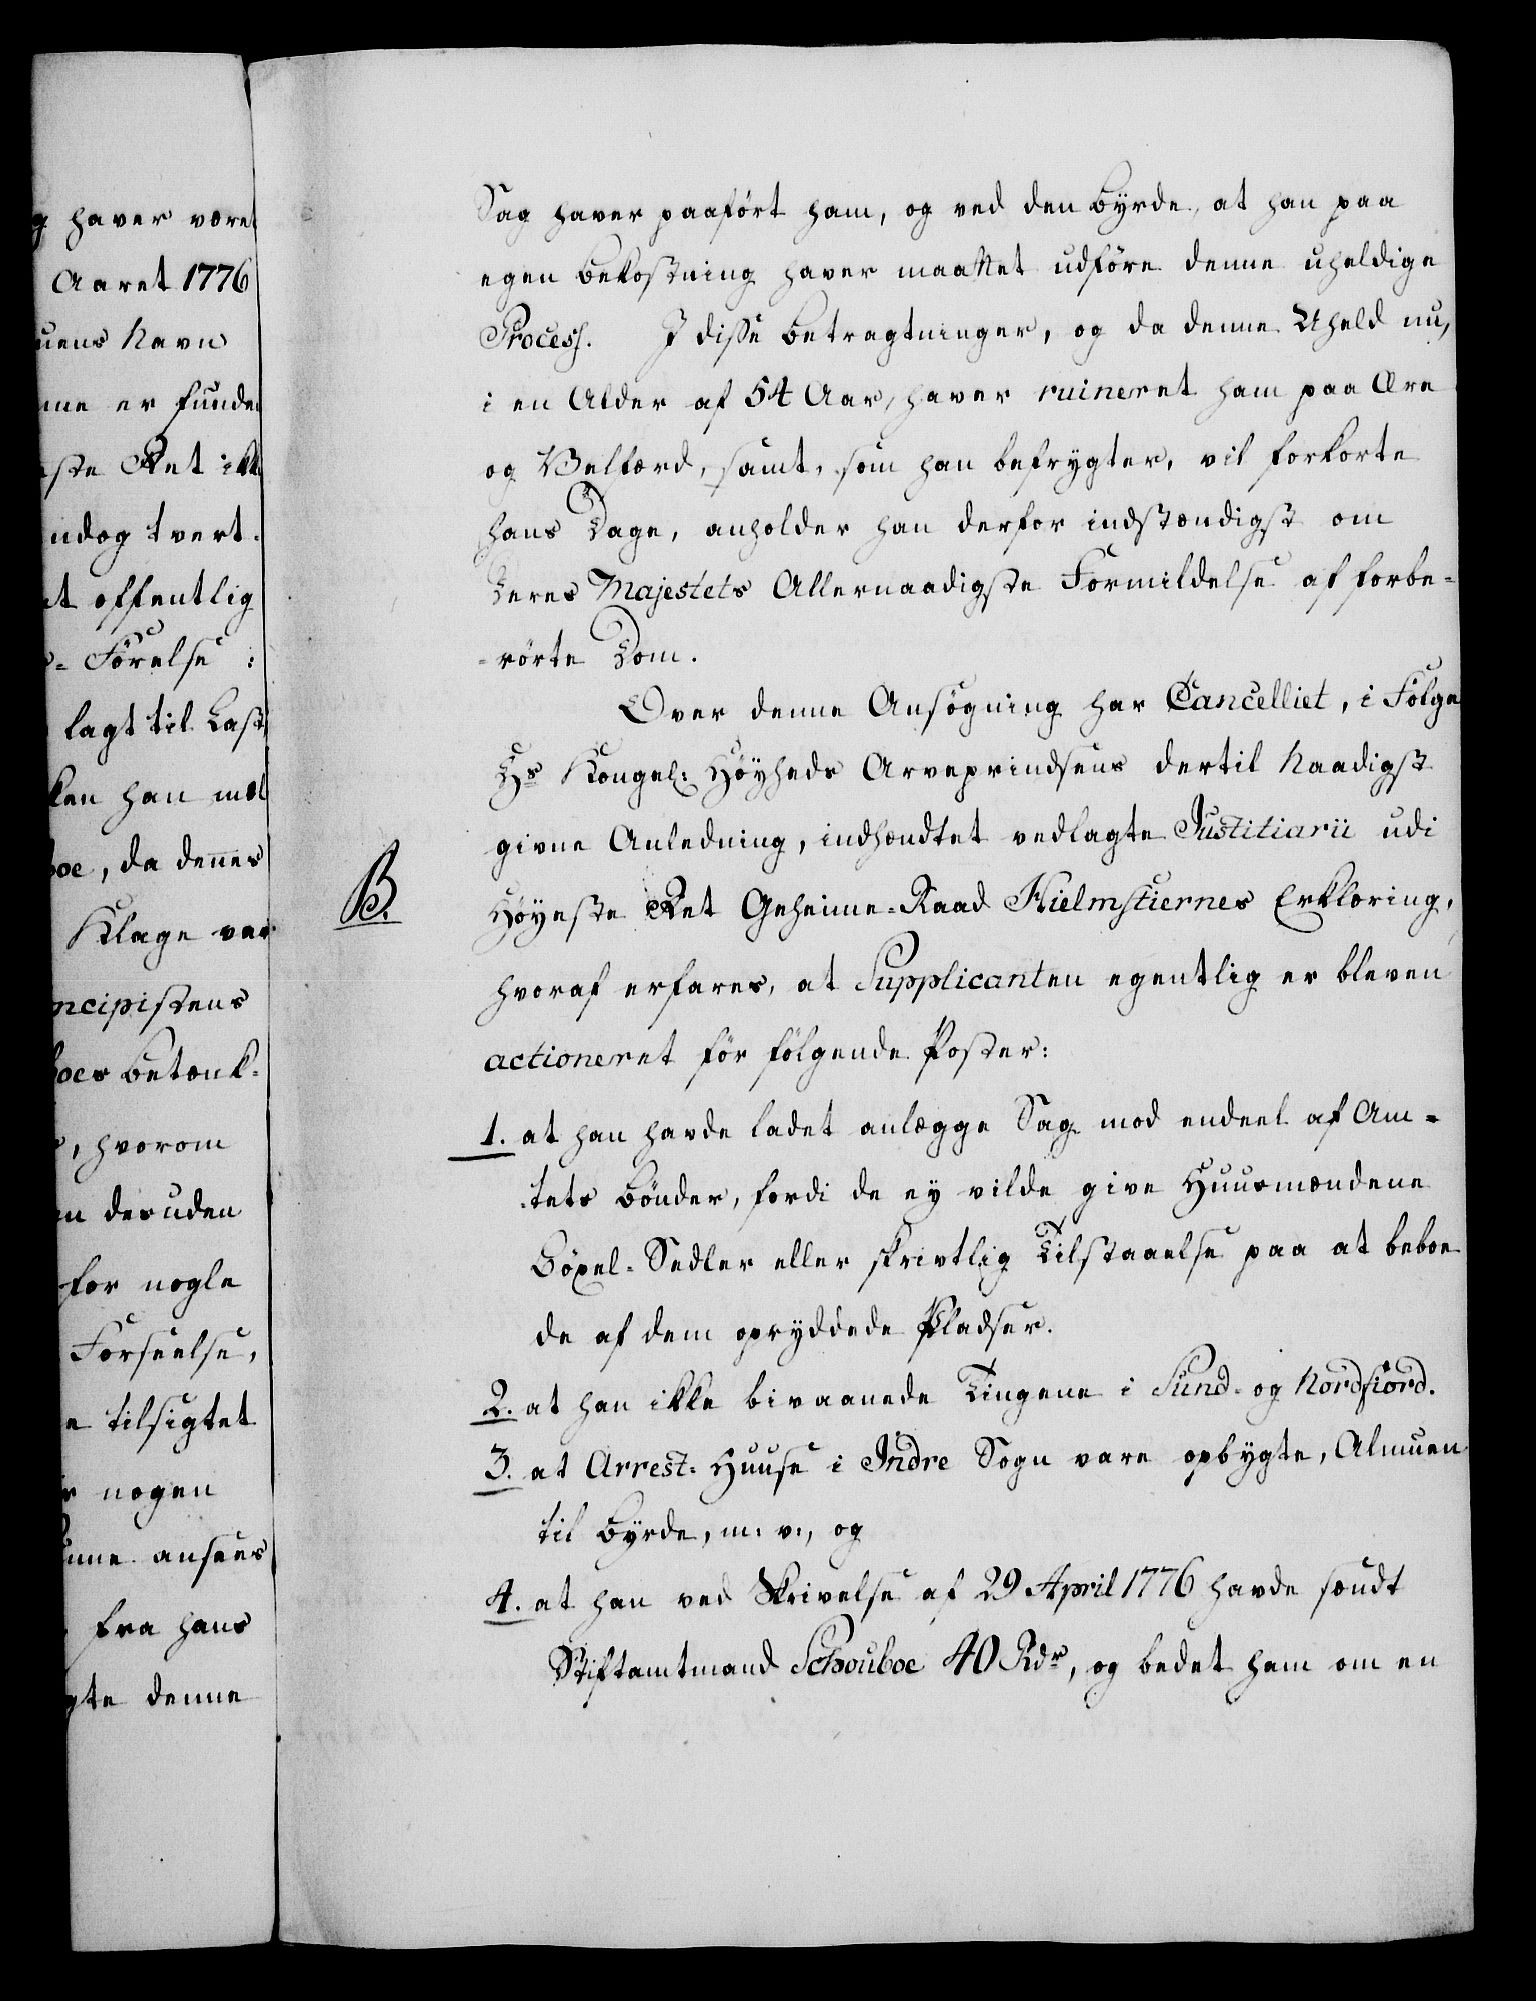 g haver være
Aaret 1776
uens Navn
me er funde
ste Ret ikk
ndog tvert.
et offentlig
- Førelse :
lagt til Last
ken han mæl
boe, da dennes
Klage var
ncipistens
boes Betænk-
, hvorom
en desuden
for nogle
Forseelse,
e tilsigtet
r nogen
unne ansees
fra hans
gte denne
Sag haver paaført ham, og ved den Byrde, at han paa
egen Bekostning haver maattet udføre denne uheldige
Process. I disse Betragtninger, og da denne Uheld nu,
i en Alder af 54 Aar, haver ruineret ham paa Ære
og Velfærd, samt, som han befrygter, vil forkorte
hans Dage, anholder han derfor indstændigst om
Deres Majestets Allernaadigste Formildelse af forbe-
-rørte Dom.
Over denne Ansøgning har Cancelliet, i Følge
Hs Kongel: Høyheds Arveprindsens dertil Naadigst
givne Anledning, indhændtet vedlagte Justitiarii udi
B.
Høyeste Ret Geheime-Raad Hielmstiernes Erklæring,
hvoraf erfares, at Supplicanten egentlig er bleven
actioneret før følgende Poster:
1. at han havde ladet anlægge Sag mod endeel af Am-
-tets Bønder, fordi de ey vilde give Huusmændene
Böxel-Sedler eller skrivtlig Tilstaaelse paa at beboe
de af dem opryddede Pladser.
2. at han ikke bivaanede Tingene i Sund- og Nordfiord.
3. at Arrest-Huuse i Indre Sogn vare opbygte, Almuen
til Byrde, m: v:, og
4. at han ved Skrivelse af 29 April 1776 havde sændt
Stiftamtmand Schouboe 40 Rdr, og bedet ham om en